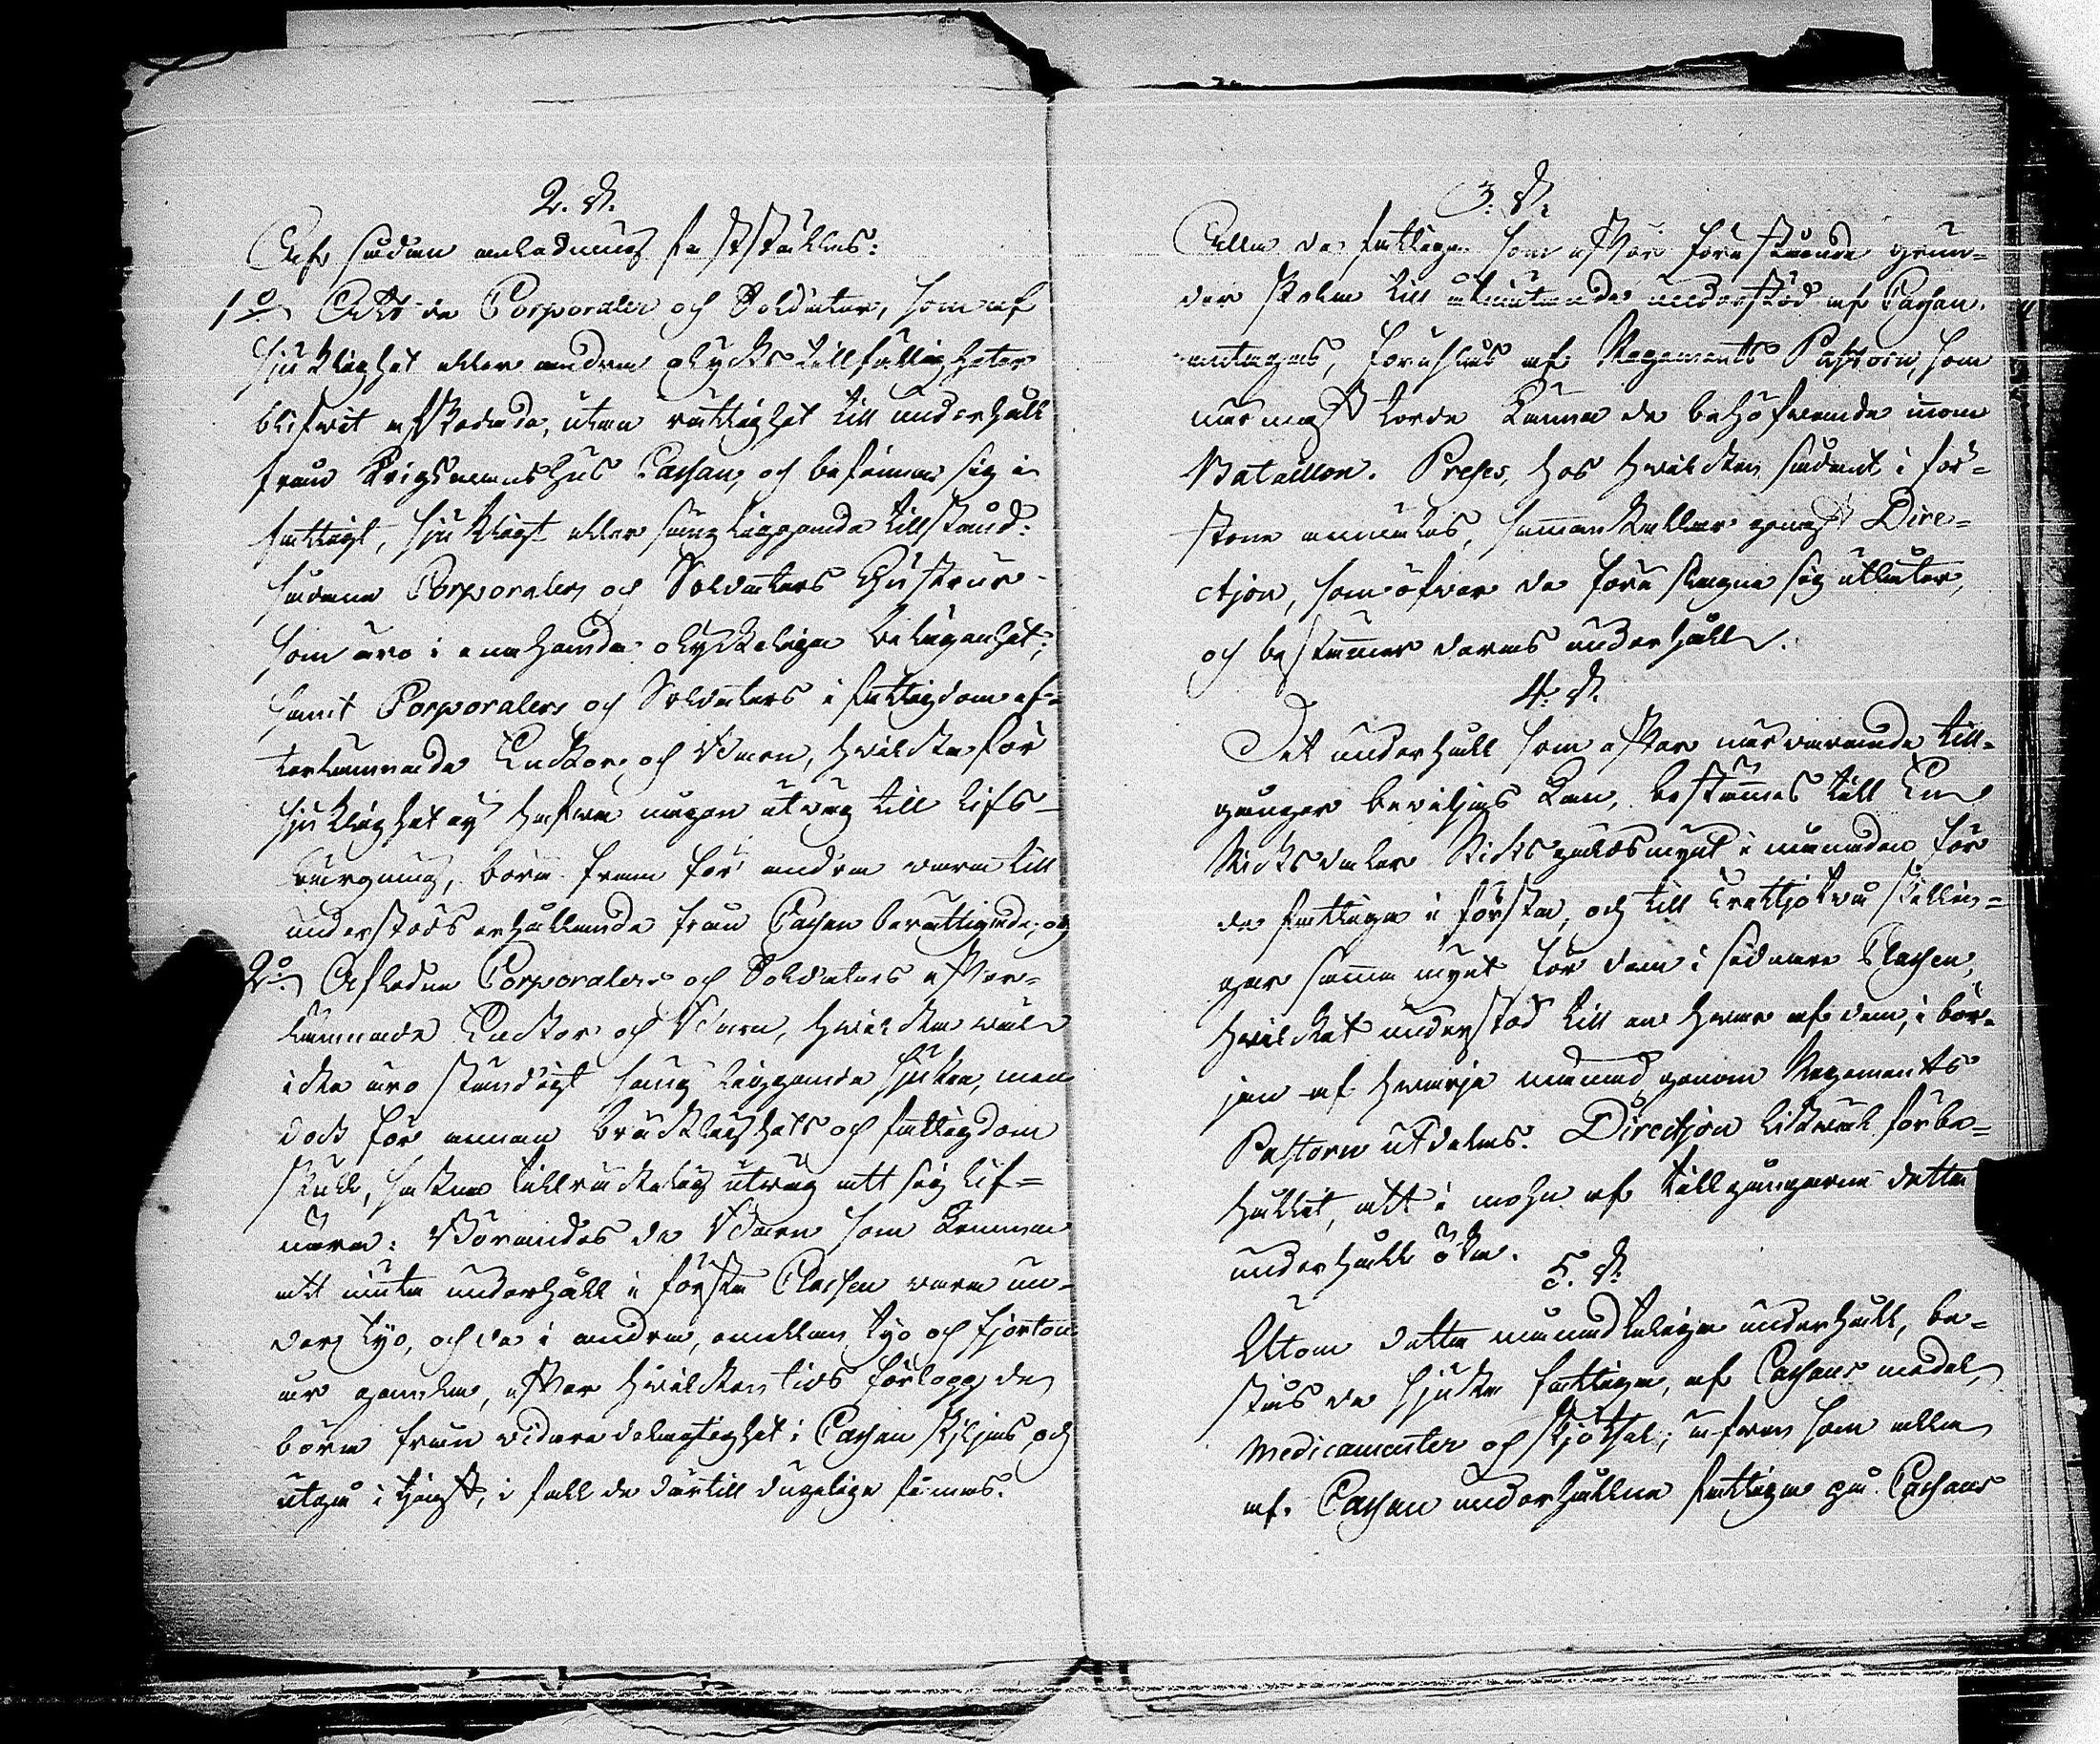 2. §.
Af sådan anledning fastställes:
1o. Att de Corporaler och Soldater, som af
sjuklighet eller andra olyckstillfälligheter
blifvit afskedade, utan rättighet till underhåll
från Krigsmanshus Cassan, och befinna sig i
fattigt, sjukligt eller sängliggande tillstånd:
sådana Corporalers och Soldaters Hustrur
som äro i enahanda olyckeliga belägenhet;
samt Corporalers och Soldaters i fattigdom ef-
terlämnade Enckor och Barn, hvilcka för
sjuklighet ej hafva någon utväg till lifs-
bärgning, böra framför andra vara till
understöds erhållande från Cassan berättigade; och
2o. Aflednа Corporalers och Soldaters efter-
lämnade Enckor och Barn, hvilcka väl
icke äro ständigt sängliggande sjuka, men
dock för annan bräcklighets och fattigdom
skull, sakna tillräckelig utväg att sig lif-
nära: Börandes de Barn som komma
att njuta underhåll i första Classen vara un-
der tijo, och de i andra, emellan tijo och fjorton
år gamla, efter hvilcken tids förlopp de
böra från vidare delaktighet i Cassan skiljas, och
utgå i tjenst, i fall de därtill dugelige finnas.
3. §.
Alla de fattiga som efter förestående grun-
der skola till åtnjutande understöd af Cassan
antagas, föreslås af Regements Pastorn, som
närmast torde känna de behöfvande inom
Bataillon. Preses, hos hvilcken sådant i för-
stone anmäles, sammankallar genast Dire-
ctjon, som öfver de föreslagne sig utlåter,
och bestämmer deras underhåll.
4. §.
Det underhåll som efter närvarande till-
gångar beviljas kan, bestämmes till En
Riksdaler Riksgäldsmynt i månaden för
de fattiga i första, och till Trettjotvå skillin-
gar samma mynt för dem i sednare Classen,
hvilcket understöd till en hvar af dem, i bör-
jan af hvarje månad genom Regements
Pastorn utdelas. Directjon likväl förbe-
hållit, att i mohn af tillgångarne detta
underhåll öka.
5. §.
Utom detta månadteliga underhåll, be-
stås de sjuka fattiga, af Cassans medel,
Medicamenter och skjötsel; äfven som alla
af Cassan underhållna fattiga på Cassans